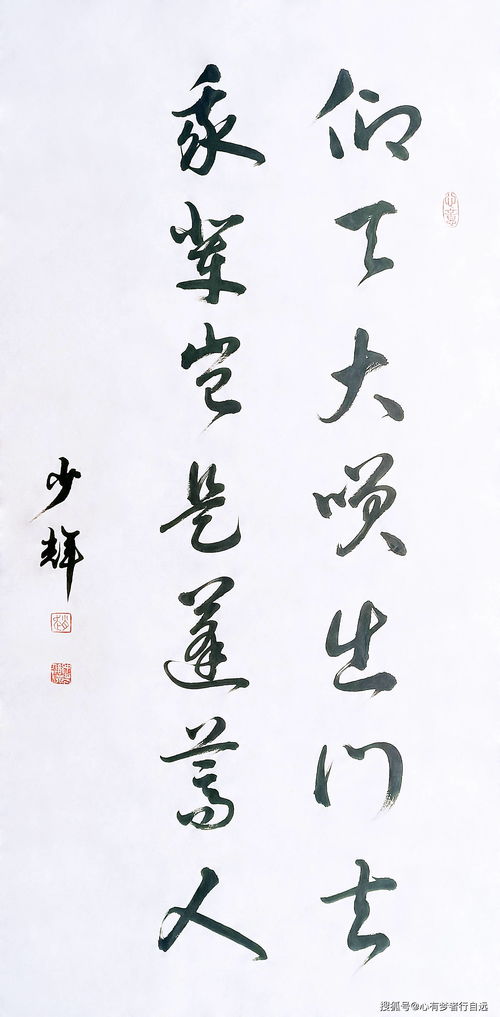 仰天大咲出门去
我辈岂是蓬蒿人
少辉
搜狐号@心有梦者行自远